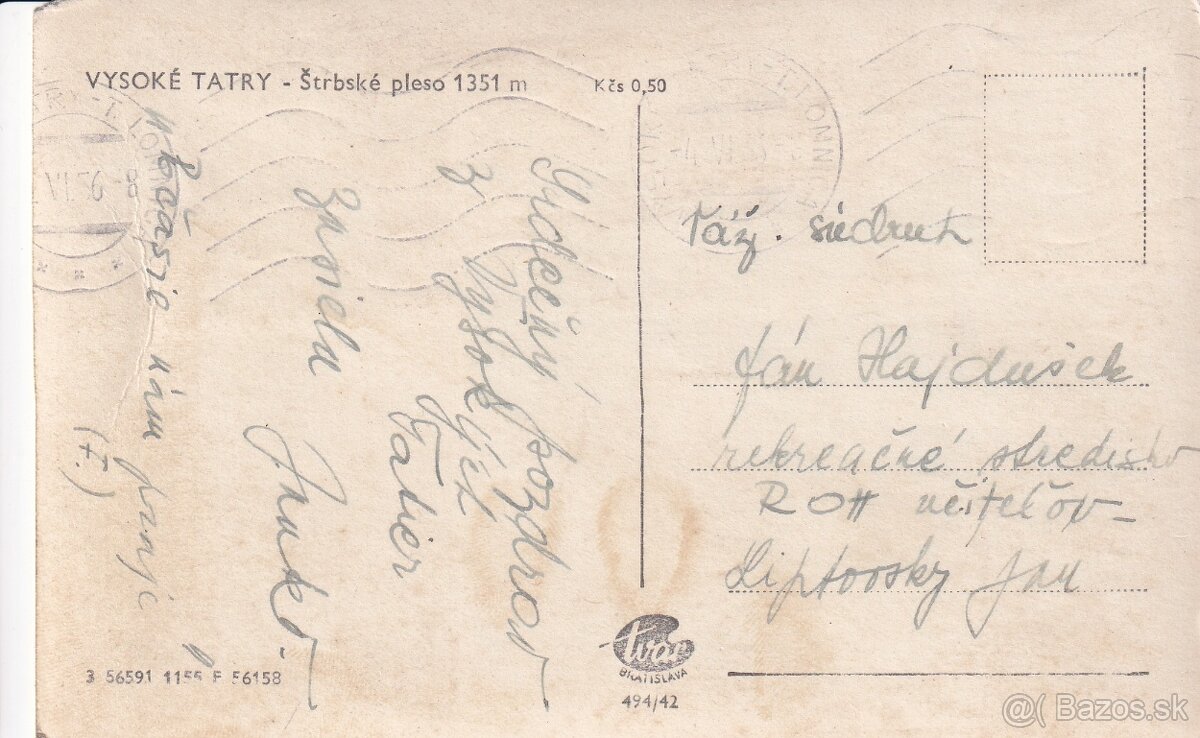 VYSOKÉ TATRY - Štrbské pleso 1351 m
Kčs 0,50
Srdečný pozdrav
z Vysokých
Tatier
zasiela
Janko
Počasie nám praje
(F.)
Váž. súdruh
Ján Hajdušek
rekreačné stredisko
ROH učiteľov-
Liptovský Jan
3 56591 1155 F 56158
tvar
BRATISLAVA
494/42
@( Bazos.sk